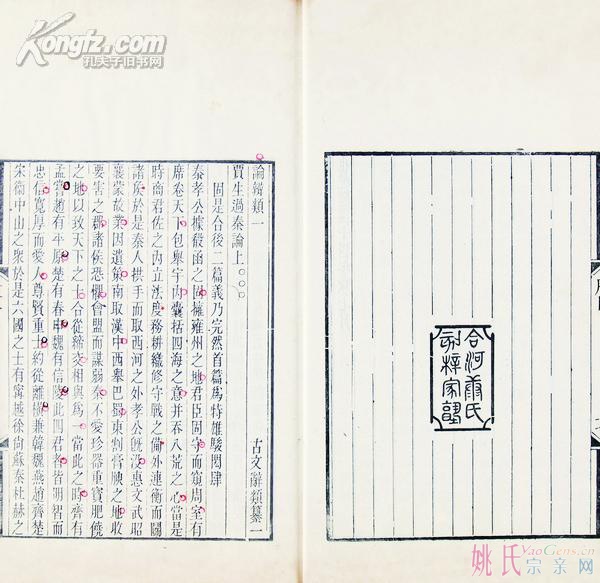 Kongfz.com
孔夫子旧书网
合河康氏
刻梓家塾
論辨類一
古文辭類纂一
賈生過秦論上
固是合後二篇義乃完然首篇爲特雄駿閎肆
秦孝公據殽函之固擁雍州之地君臣固守而窺周室有
席卷天下包舉宇內囊括四海之意并吞八荒之心當是
時商君佐之內立法度務耕織修守戰之備外連衡而鬭
諸侯於是秦人拱手而取西河之外孝公旣沒惠文武昭
襄蒙故業因遺策南取漢中西舉巴蜀東割膏腴之地收
要害之郡諸侯恐懼會盟而謀弱秦不愛珍器重寶肥饒
之地以致天下之士合從締交相與爲一當此之時齊有
孟嘗趙有平原楚有春申魏有信陵此四君者皆明智而
忠信寬厚而愛人尊賢重士約從離橫兼韓魏燕趙齊楚
宋衞中山之衆於是六國之士有甯越徐尙蘇秦杜赫之
姚氏
YaoGens.cn
宗亲网